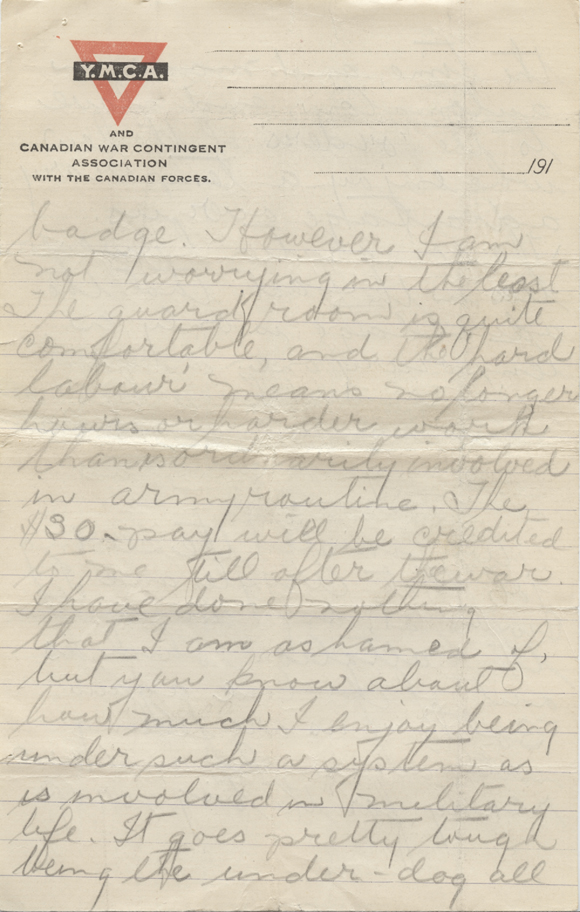 Y.M.C.A.
AND
CANADIAN WAR CONTINGENT
ASSOCIATION
WITH THE CANADIAN FORCES.
191
badge. However I am
not worrying in the least
The guard room is quite
comfortable, and the "hard
labour" means no longer
hours or harder work
than is ordinarily involved
in army routine. The
$30. pay will be credited
to me till after the war.
I have done nothing
that I am ashamed of,
but you know about
how much I enjoy being
under such a system as
is involved in military
life. It goes pretty tough
being the under-dog all